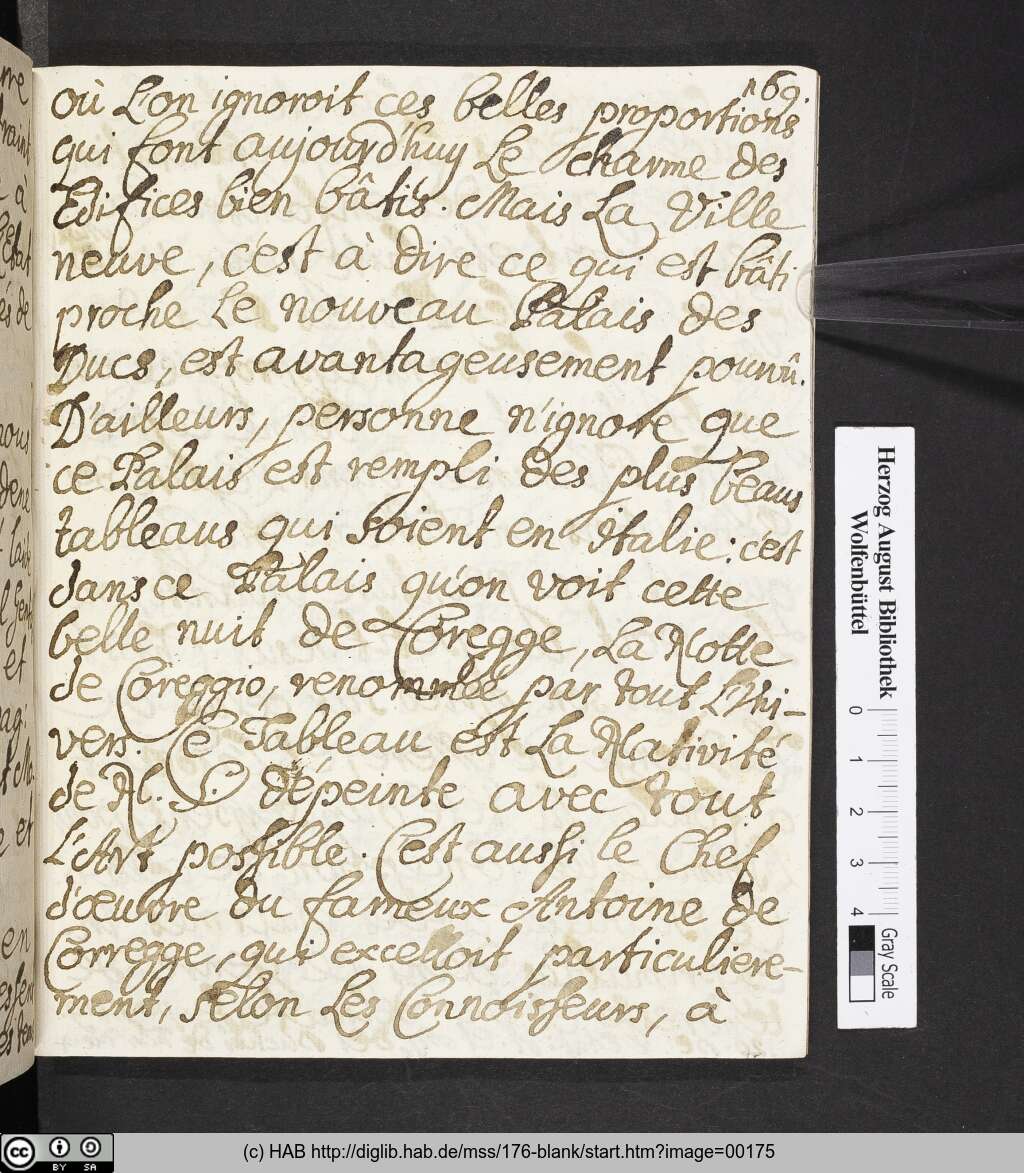 169.
où L'on ignoroit ces belles proportions
qui font aujourd'huy Le charme des
Edifices bien bâtis. Mais La Ville
neuve, c'est à dire ce qui est bâti
proche Le nouveau Palais des
Ducs, est avantageusement pourvû.
D'ailleurs, personne n'ignore que
ce Palais est rempli des plus beaus
tableaus qui soient en Italie: c'est
dans ce Palais qu'on voit cette
belle nuit de Coregge, La Notte
de Coreggio, renommée par tout L'Uni-
vers. Ce Tableau est La Nativité
de N. S. dépeinte avec tout
L'Art possible. C'est aussi le Chef
d'œuvre du fameux Antoine de
Corregge, qui excelloit particuliere-
ment, selon Les Connoisseurs, à
Herzog August Bibliothek
Wolfenbüttel
0 1 2 3 4
Gray Scale
cc BY SA
(c) HAB http://diglib.hab.de/mss/176-blank/start.htm?image=00175